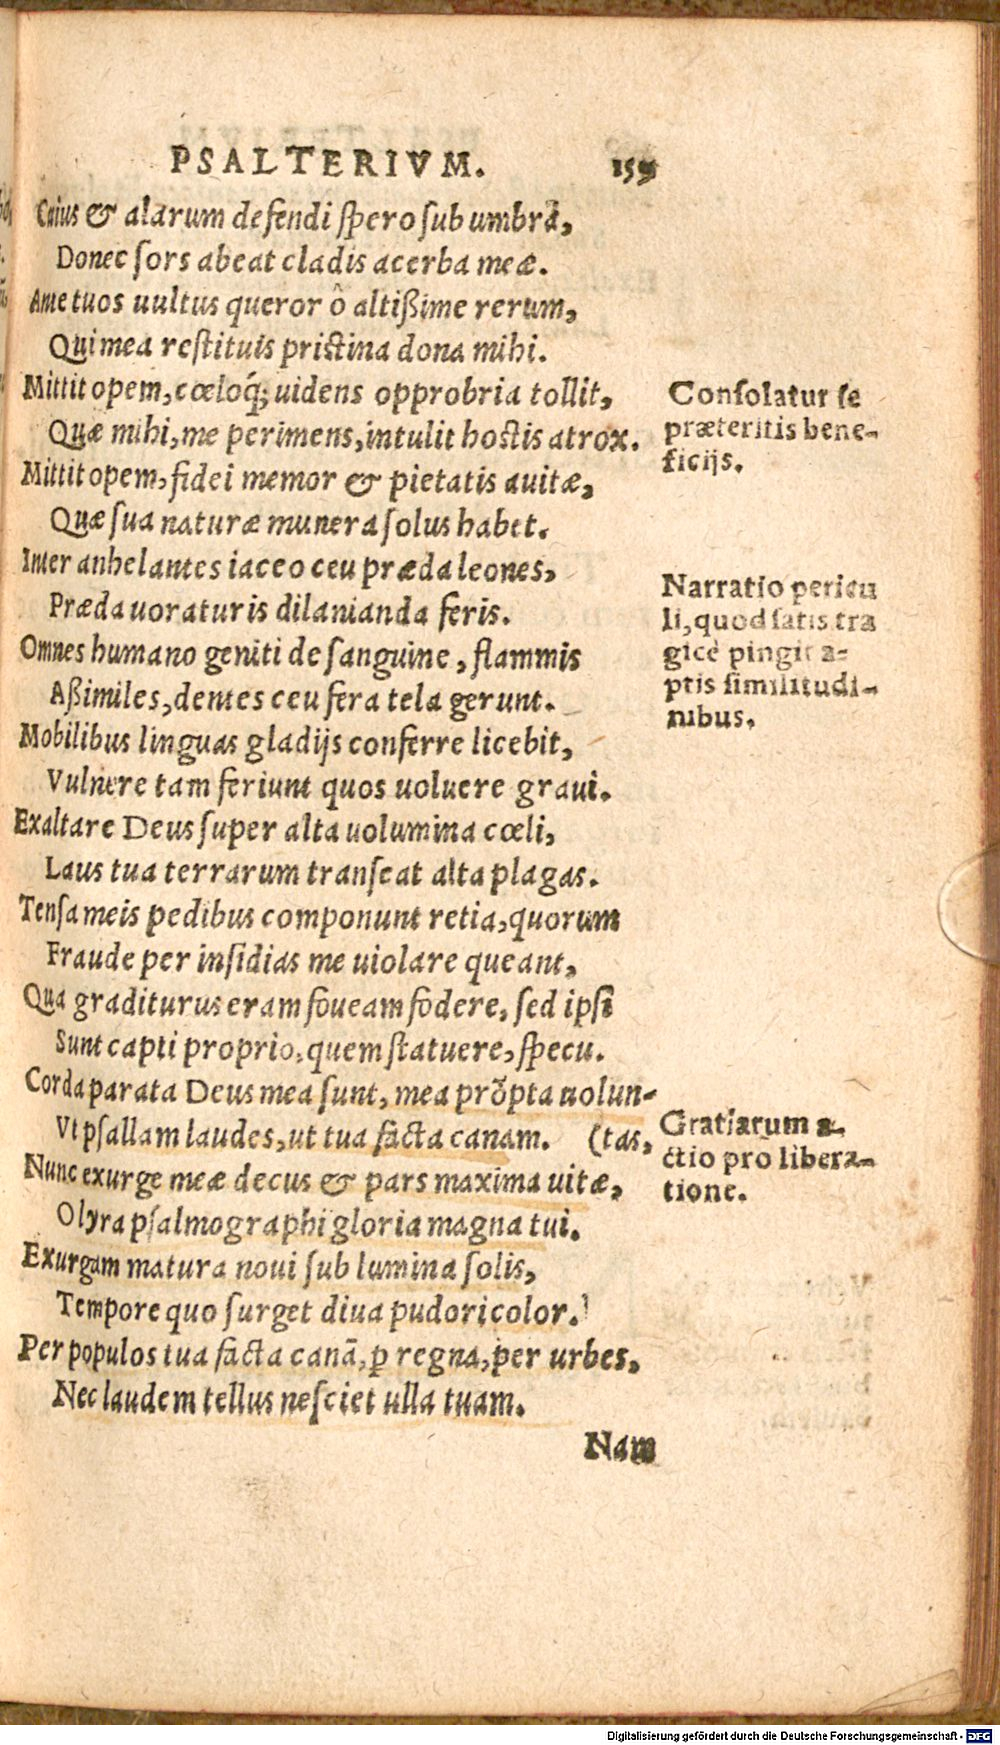 PSALTERIVM. 159
Cuius & alarum defendi ſpero ſub umbra,
Donec ſors abeat cladis acerba meæ.
Ante tuos uultus queror ô altißime rerum,
Qui mea reſtituis priſtina dona mihi.
Mittit opem, cœloq́; uidens opprobria tollit,
Quæ mihi, me perimens, intulit hoſtis atrox.
Conſolatur ſe
præteritis bene-
ficijs.
Mittit opem, fidei memor & pietatis auitæ,
Quæ ſua naturæ munera ſolus habet.
Inter anhelantes iaceo ceu præda leones,
Præda uoraturis dilanianda feris.
Omnes humano geniti de ſanguine, flammis
Aßimiles, dentes ceu fera tela gerunt.
Narratio pericu
li, quod ſatis tra
gicè pingit a-
ptis ſimilitudi-
nibus.
Mobilibus linguas gladijs conferre licebit,
Vulnere tam feriunt quos uoluere graui.
Exaltare Deus ſuper alta uolumina cœli,
Laus tua terrarum tranſeat alta plagas.
Tenſa meis pedibus componunt retia, quorum
Fraude per inſidias me uiolare queant,
Qua graditurus eram foueam fodere, ſed ipſi
Sunt capti proprio, quem ſtatuere, ſpecu.
Corda parata Deus mea ſunt, mea prõpta uolun-
Vt pſallam laudes, ut tua facta canam. (tas,
Gratiarum a-
ctio pro libera-
tione.
Nunc exurge meæ decus & pars maxima uitæ,
O lyra pſalmographi gloria magna tui.
Exurgam matura noui ſub lumina ſolis,
Tempore quo ſurget diua pudoricolor.
Per populos tua facta canã, ꝑ regna, per urbes,
Nec laudem tellus neſciet ulla tuam.
Nam
Digitalisierung gefördert durch die Deutsche Forschungsgemeinschaft - DFG